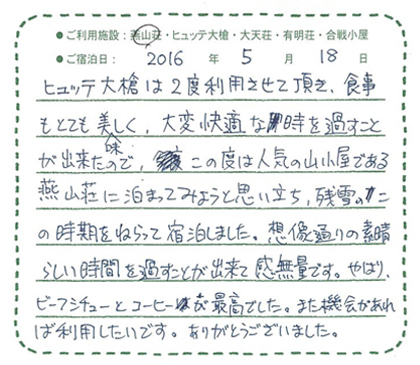 ●ご利用施設：燕山荘・ヒュッテ大槍・大天荘・有明荘・合戦小屋
●ご宿泊日： 2016 年 5 月 18 日
ヒュッテ大槍は2度利用させて頂き、食事
もとても美味しく、大変快適な時を過すこと
が出来たので、この度は人気の山小屋である
燕山荘に泊まってみようと思い立ち、残雪のこ
の時期をねらって宿泊しました。想像通りの素晴
らしい時間を過すことが出来て感無量です。やはり、
ビーフシチューとコーヒーは最高でした。また機会があれ
ば利用したいです。ありがとうございました。